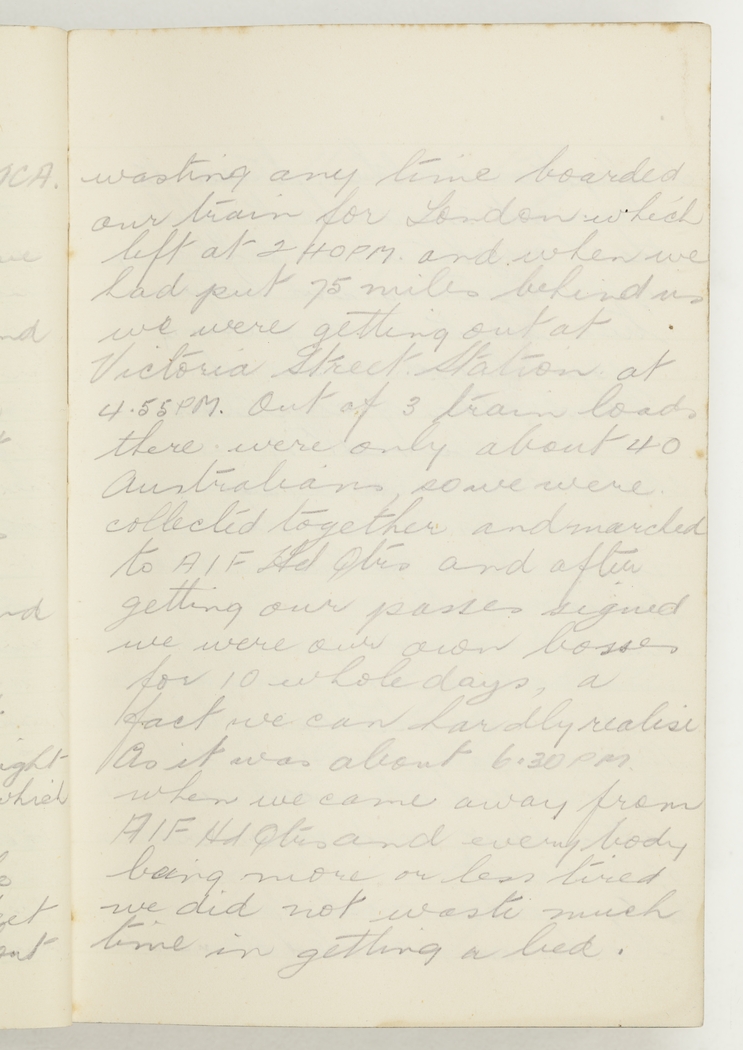 wasting any time boarded
our train for London which
left at 2.40PM. and when we
had put 75 miles behind us
we were getting out at
Victoria Street Station at
4.55PM. Out of 3 train loads
there were only about 40
Australians, so we were
collected together and marched
to AIF Hd Qtrs and after
getting our passes signed
we were our own bosses
for 10 whole days, a
fact we can hardly realise
As it was about 6.30PM.
when we came away from
AIF Hd Qtrs and everybody
being more or less tired
we did not waste much
time in getting a bed.